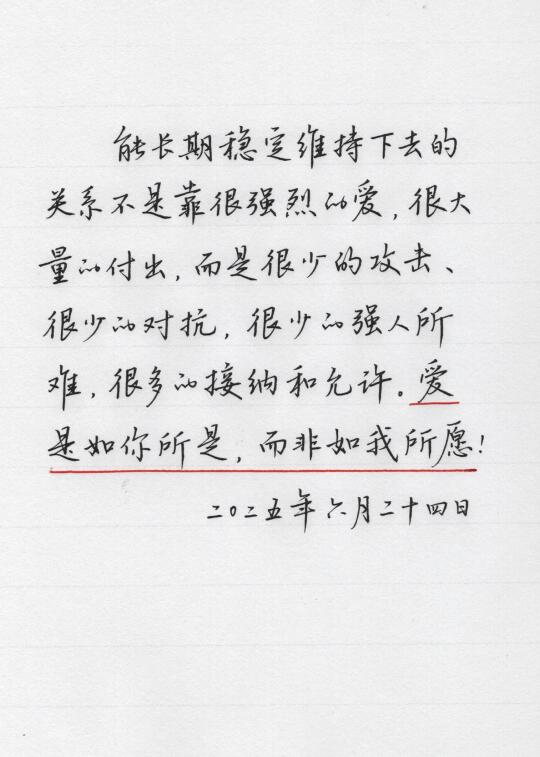 能长期稳定维持下去的
关系不是靠很强烈的爱，很大
量的付出，而是很少的攻击、
很少的对抗，很少的强人所
难，很多的接纳和允许。爱
是如你所是，而非如我所愿！
二〇二五年六月二十四日